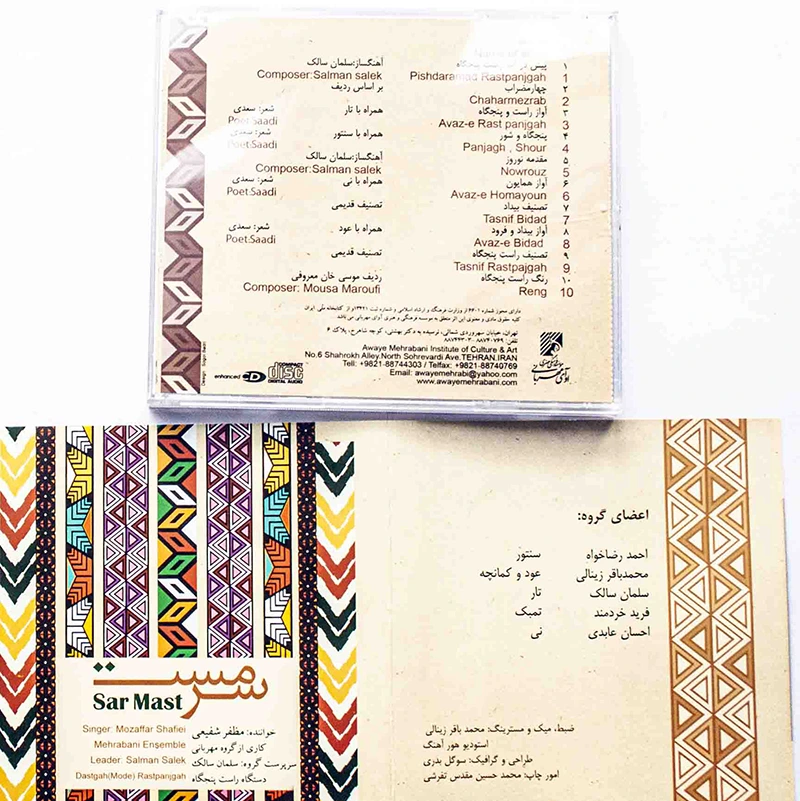 پیش درآمد راست پنجگاه ۱
آهنگساز:سلمان سالک
Pishdaramad Rastpanjgah 1
Composer:Salman salek
چهارمضراب ۲
بر اساس ردیف
Chaharmezrab 2
آواز راست و پنجگاه ۳
همراه با تار
شعر: سعدی
Avaz-e Rast panjgah 3
Poet:Saadi
پنجگاه و شور ۴
همراه با سنتور
شعر: سعدی
Panjagh , Shour 4
Poet:Saadi
مقدمه نوروز ۵
آهنگساز:سلمان سالک
Nowrouz 5
Composer:Salman salek
آواز همایون ۶
همراه با نی
شعر: سعدی
Avaz-e Homayoun 6
Poet:Saadi
تصنیف بیداد ۷
تصنیف قدیمی
Tasnif Bidad 7
آواز بیداد و فرود ۸
همراه با عود
شعر: سعدی
Avaz-e Bidad 8
Poet:Saadi
تصنیف راست پنجگاه ۹
تصنیف قدیمی
Tasnif Rastpajgah 9
رنگ راست پنجگاه ۱۰
ردیف موسی خان معروفی
Reng 10
Composer: Mousa Maroufi
کلیه حقوق مادی و معنوی این اثر متعلق به موسسه فرهنگی و هنری آوای مهربانی می باشد
تهران، خیابان سهروردی شمالی، نرسیده به دکتر بهشتی، کوچه شاهرخ، پلاک ۶
تلفن: ۸۸۷۴۰۷۶۹ - ۸۸۷۴۴۳۰۳
Awaye Mehrabani Institute of Culture & Art
No.6 Shahrokh Alley.North Sohrevardi Ave.TEHRAN.IRAN
Tell: +9821-88744303 / Telfax: +9821-88740769
Email: awayemehrabi@yahoo.com
www.awayemehrabani.com
enhanced CD
COMPACT
disc
DIGITAL AUDIO
سرمست
Sar Mast
خواننده: مظفر شفیعی
Singer: Mozaffar Shafiei
کاری از گروه مهربانی
Mehrabani Ensemble
سرپرست گروه: سلمان سالک
Leader: Salman Salek
دستگاه راست پنجگاه
Dastgah(Mode) Rastpanjgah
اعضای گروه:
احمد رضاخواه سنتور
محمدباقر زینالی عود و کمانچه
سلمان سالک تار
فرید خردمند تمبک
احسان عابدی نی
ضبط، میک و مسترینگ: محمد باقر زینالی
استودیو هور آهنگ
طراحی و گرافیک: سوگل بدری
امور چاپ: محمد حسین مقدس تفرشی